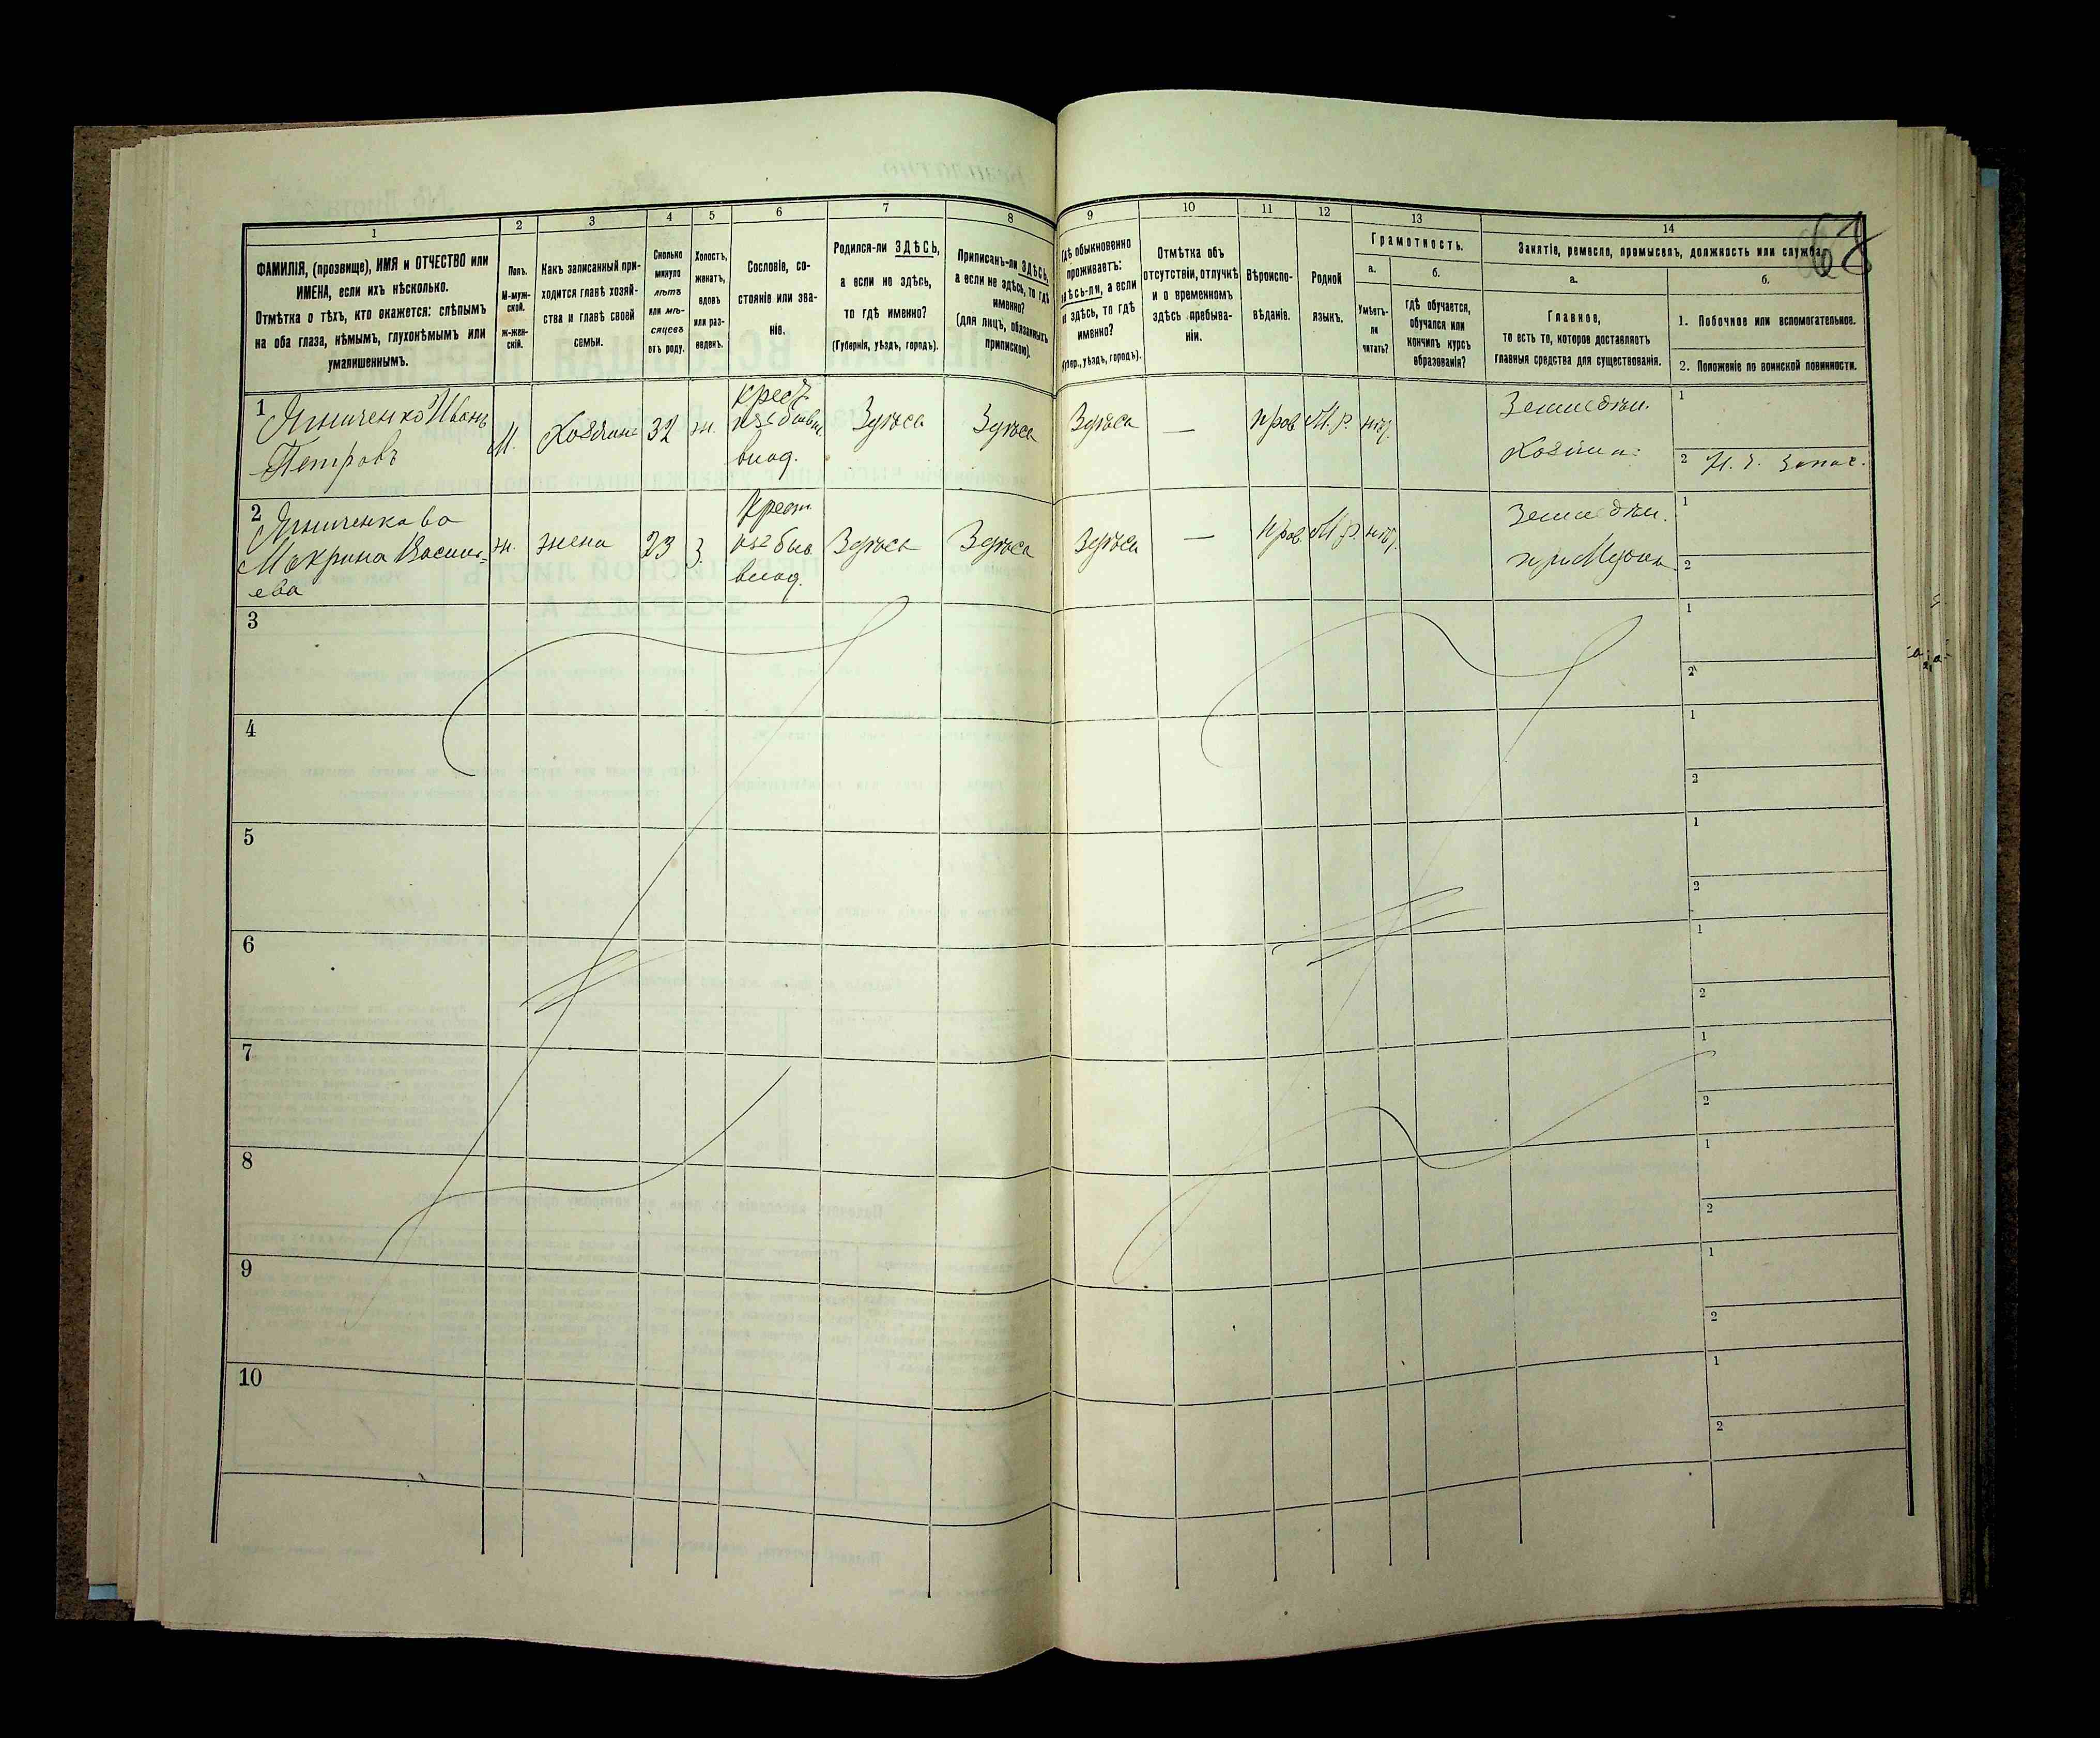 68
1 2 3 4 5 6 7 8 9 10 11 12 13 14
ФАМИЛІЯ, (прозвище), ИМЯ и ОТЧЕСТВО или
ИМЕНА, если ихъ нѣсколько.
Отмѣтка о тѣхъ, кто окажется: слѣпымъ
на оба глаза, нѣмымъ, глухонѣмымъ или
умалишеннымъ.
Полъ.
М-муж-
ской.
Ж-жен-
скій.
Какъ записанный при-
ходится главѣ хозяй-
ства и главѣ своей
семьи.
Сколько
минуло
лѣтъ
или мѣ-
сяцевъ
отъ роду.
Холостъ,
женатъ,
вдовъ
или раз-
веденъ.
Сословіе, со-
стояніе или зва-
ніе.
Родился-ли ЗДѢСЬ,
а если не здѣсь,
то гдѣ именно?
(Губернія, уѣздъ, городъ).
Приписанъ-ли ЗДѢСЬ,
а если не здѣсь, то гдѣ
именно?
(для лицъ, обязанныхъ
припискою).
Гдѣ обыкновенно
проживаетъ:
здѣсь-ли, а если
не здѣсь, то гдѣ
именно?
(Губер., уѣздъ, городъ).
Отмѣтка объ
отсутствіи, отлучкѣ
и о временномъ
здѣсь пребыва-
ніи.
Вѣроиспо-
вѣданіе.
Родной
языкъ.
Грамотность.
а.
Умѣетъ-
ли
читать?
б.
гдѣ обучается,
обучался или
кончилъ курсъ
образованія?
Занятіе, ремесло, промыселъ, должность или служба.
а.
Главное,
то есть то, которое доставляетъ
главныя средства для существованія.
б.
1. Побочное или вспомогательное.
2. Положеніе по воинской повинности.
1
Иванъ
Петровъ
М.
Хозяинъ
32
ж.
крест.
изъ бывш.
влад.
Здѣсь
Здѣсь
Здѣсь
—
прав
М.р.
нѣт.
Земледѣл.
Хозяин
1
2
2
Макрина Васил-
ева
ж.
жена
23
З.
крест
изъ быв
влад.
Здѣсь
Здѣсь
Здѣсь
—
прав.
М.р.
нѣт.
Земледѣл.
при Мужѣ
1
2
3
1
2
4
1
2
5
1
2
6
1
2
7
1
2
8
1
2
9
1
2
10
1
2